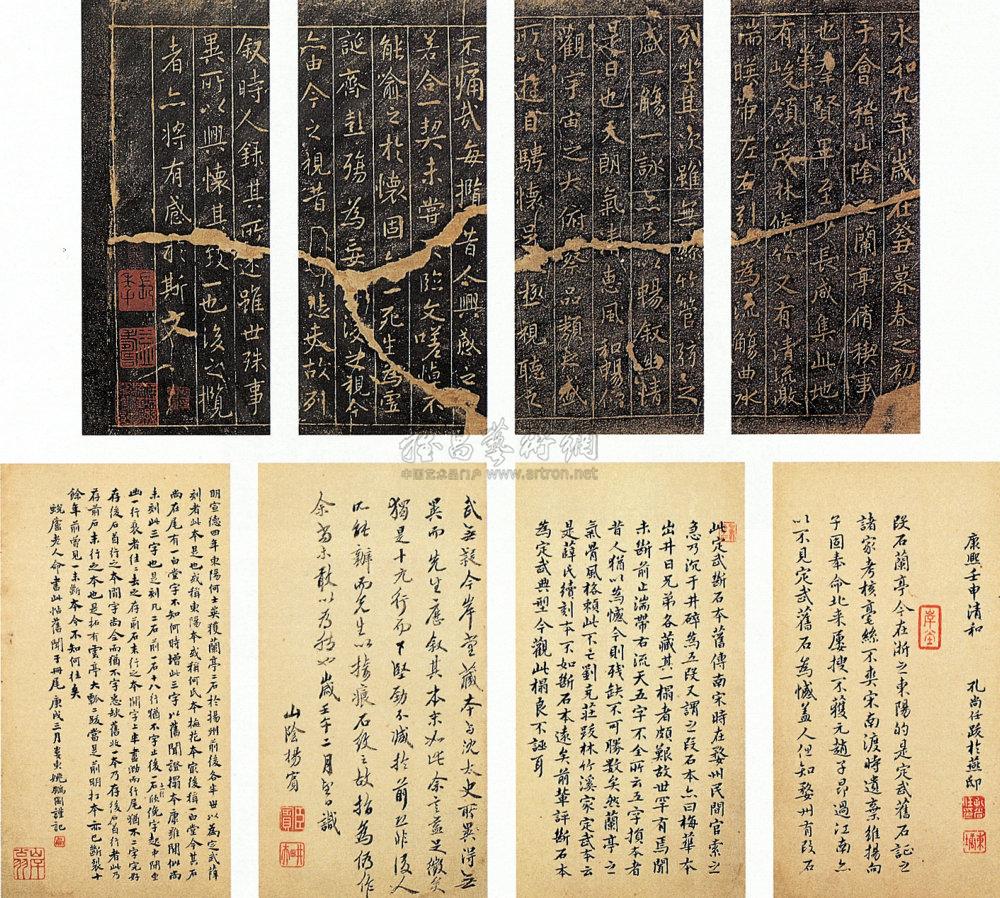 永和九年歲在癸丑暮春之初
于會稽山陰之蘭亭脩稧事
也羣賢畢至少長咸集此地
有峻領茂林脩竹又有清流激
湍暎帶左右引以為流觴曲水
列坐其次雖無絲竹管弦之
盛一觴一詠亦足以暢敘幽情
是日也天朗氣清惠風和暢仰
觀宇宙之大俯察品類之盛
所以遊目騁懷足以極視聽之
不痛哉每攬昔人興感之
若合一契未嘗不臨文嗟悼不
能喻之於懷固知一死生為虛
誕齊彭殤為妄作後之視今
亦由今之視昔悲夫故列
叙時人錄其所述雖世殊事
異所以興懷其致一也後之攬
者亦將有感於斯文
雅昌藝術網
中国艺术品门户 www.artron.net
段石蘭亭今在浙之東陽的是定武舊石証之
諸家考核毫絲不爽宋南渡時遺棄維揚向
子固奉命北來屢搜不獲元趙子昂過江南亦
以不見定武舊石為憾蓋人但知婺州有段石
康熙壬申清和 孔尚任跋於燕邸
此定武斷石本舊傳南宋時在婺州民間官索之
急乃沉于井碎為五段又謂之段石本亦曰梅華本
出井日兄弟各藏其一搨者頗艱故世罕有焉聞
未斷前止端帶右流天五字不全所云五字損本者
昔人猶以為憾今則殘缺不可勝數矣然蘭亭之
氣骨風格賴此下亡劉克莊跋林竹溪家定武本云
是薛氏續刻本不如斷石本遠矣前輩評斷石本
為定武典型今觀此搨良不誣耳
武無疑今岸堂藏本与沈太史所異得無
異而先生應叙其本末如此余言益足徵矣
獨是十九行而下堅勁不減於前且非後人
所能辦而先生以接痕石致之故指為仿作
余尚未敢以為然也歲壬午二月望日識
山陰楊賓
明宣德四年東陽何士英獲蘭亭二石於揚州前後各半世以為定武薛
刻者此本是也或稱東陽本或稱何氏本梅花本家後稱一百堂今其石
尚在尾有一百堂字不知何時增此三字以舊聞證搨本康雍間似尚
未刻此三字也是刻凡二石前一石十八行猶不字止後一石欣俛字起中間坐
幽一行裂者往往去之存前石末行之本間字上半畫泐而行尾猶不二字完好
存後石首行之本間字尚全而猶不字忽缺舊拓一本乃存後石首行者此乃
存前石末行之本也是拓有雲亭大瓢二跋當是前明拓本亦已斷裂十
餘年前曾見一未斷本今不知何往矣
蛻廬老人命書此帖舊聞于冊尾庚戌三月 姚鵷圖謹記